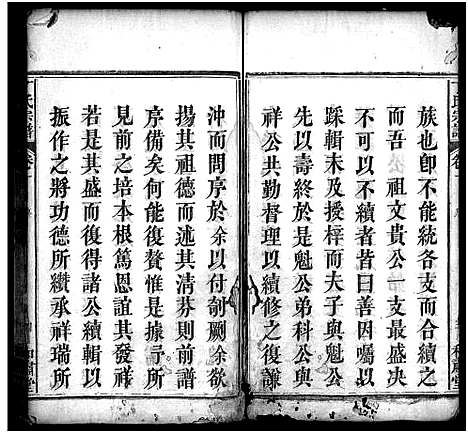 族也卽不能統各支而合修
而吾　祖文貴公一支最盛决
不可以不續者昔曰善因囑以
踩輯未及授梓而夫子與魁公
先以壽終於是魁公弟科公與
祥公共勤督理以續修之復謙
沖而問序於余以付剞劂余欲
揚其祖德而述其清芬則前譜
序備矣何能復贅惟是據示所
見前之培本根篤恩誼其發祥
若是其盛而復得諸公續輯以
振作之將功德所纘承祥瑞所
氏宗譜